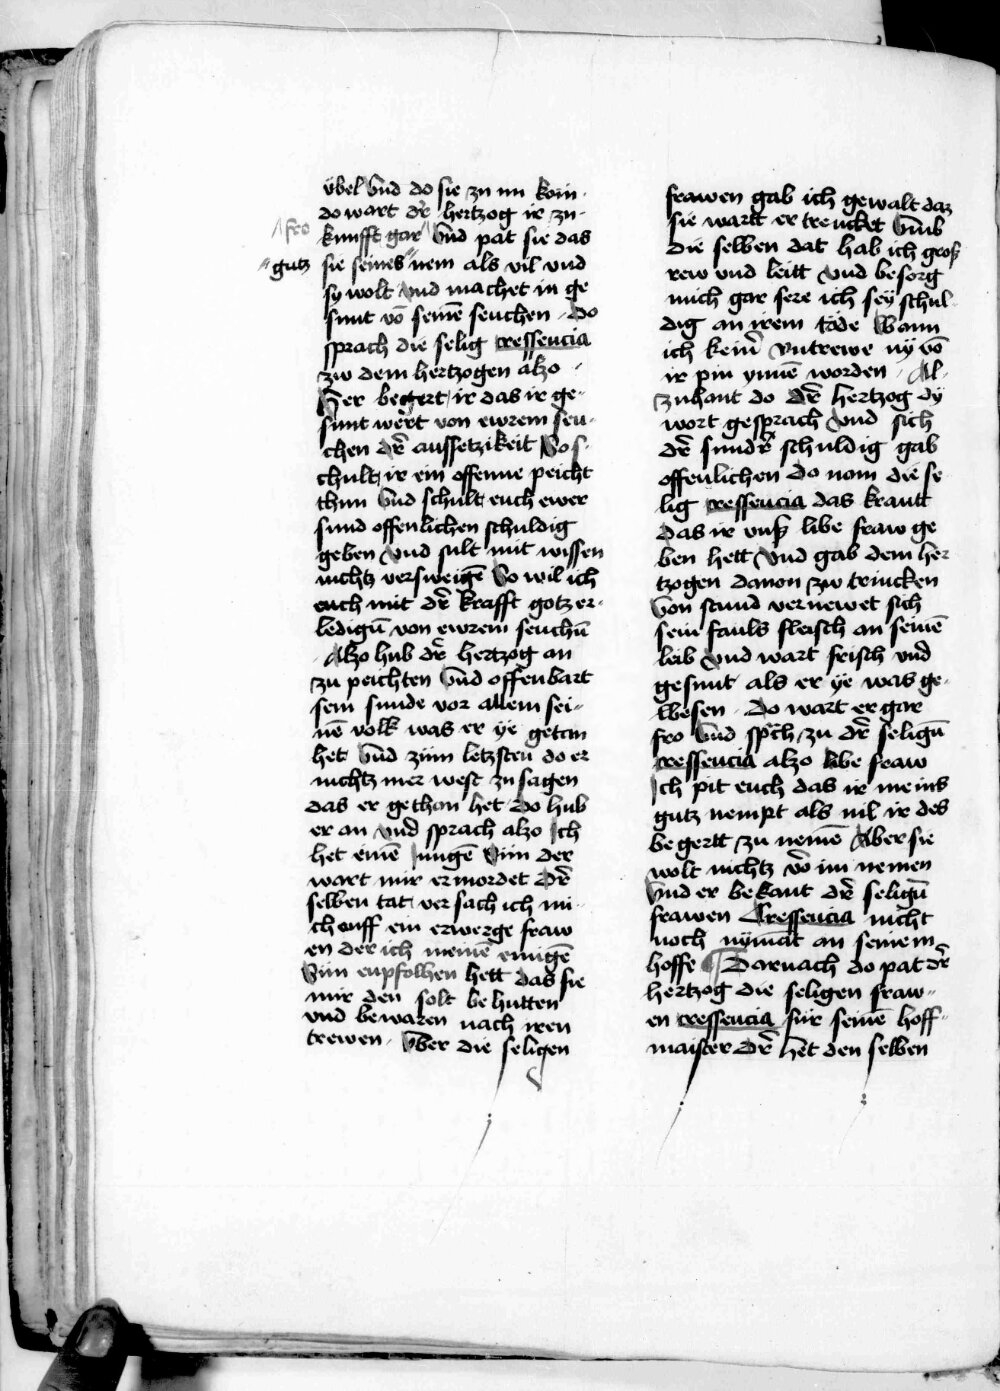 übel Vnd do sie zu im kom ·
do wart dr̄ hertzog ir zu-
fro
kunfft gar Vnd pat sie das
gutz
sie seines nem als vil vnd
sy wolt vnd machet in ge
sunt vō seinē seuchen · Do
sprach die selig cressencia
zw dem hertzogen alzo ·
Ver begert ir das ir ge-
sunt wert von ewrem seu-
chen dr̄ aussetzikeit So s-
chult ir ein offenne peicht
thun Vnd schult euch ewer
sund offenlichen schuldig
geben Vnd sult mit wissen
nichtz versweigē So wil ich
euch mit dr̄ krafft gotz er-
ledigū von ewrem seuchū
· Alzo hub dr̄ hertzog an
zu peichten Vnd offenbart
sein sunde vor allem sei-
nē volk was er ye getan
het Vnd züm letzsten do er
nichtz mer west zu sagen
das er gethan het Do hub
er an vnd sprach alzo Ich
het einē Jungē Sün der
wart mir ermordet Dr̄
selben tat ver sach ich mi-
ch auff ein erwerge fraw
en der ich meinē einigē
Sün enpfolhen hett das sie
mir den solt behutten
vnd bewaren nach iren
trewen · Vber die seligen
frawen gab ich gewalt daz
sie wartt er trencket Vmb
die selben dat hab ich groß
rew vnd leitt Vnd besorg
mich gar sere ich sey schul
dig an irem tode Wann
ich kein̄ vntrewe ny vō
ir pin ynnē worden · Al-
zuhant do dr̄ hertzog dy
wort gesprach Vnd sich
dr̄ sundr̄ schuldig gab
offenlichen Do nom die se
lig cressencia das krautt
das ir vnß libe fraw ge
ben hett Vnd gab dem her
tzogen dauon zw trincken
Von stund vernewet sich
sein fauls fleisch an seinē
leib Vnd wart frisch vnd
gesunt als er ye was ge-
Wesen · Do wart er gar
fro Vnd sprch zu dr̄ seligū
cressencia alzo libe fraw
Ich pit euch das ir meins
gutz nempt als uil ir des
begertt zu nemē Aber sie
wolt nichtz vō im nemen
Vnd er bekant dr̄ seligū
frawen Cressencia nicht
noch nymāt an seinem
hoffe Darnach do pat dr̄
hertzog die seligen fraw-
en cressencia für seinē hoff-
maister Dr̄ het den selben